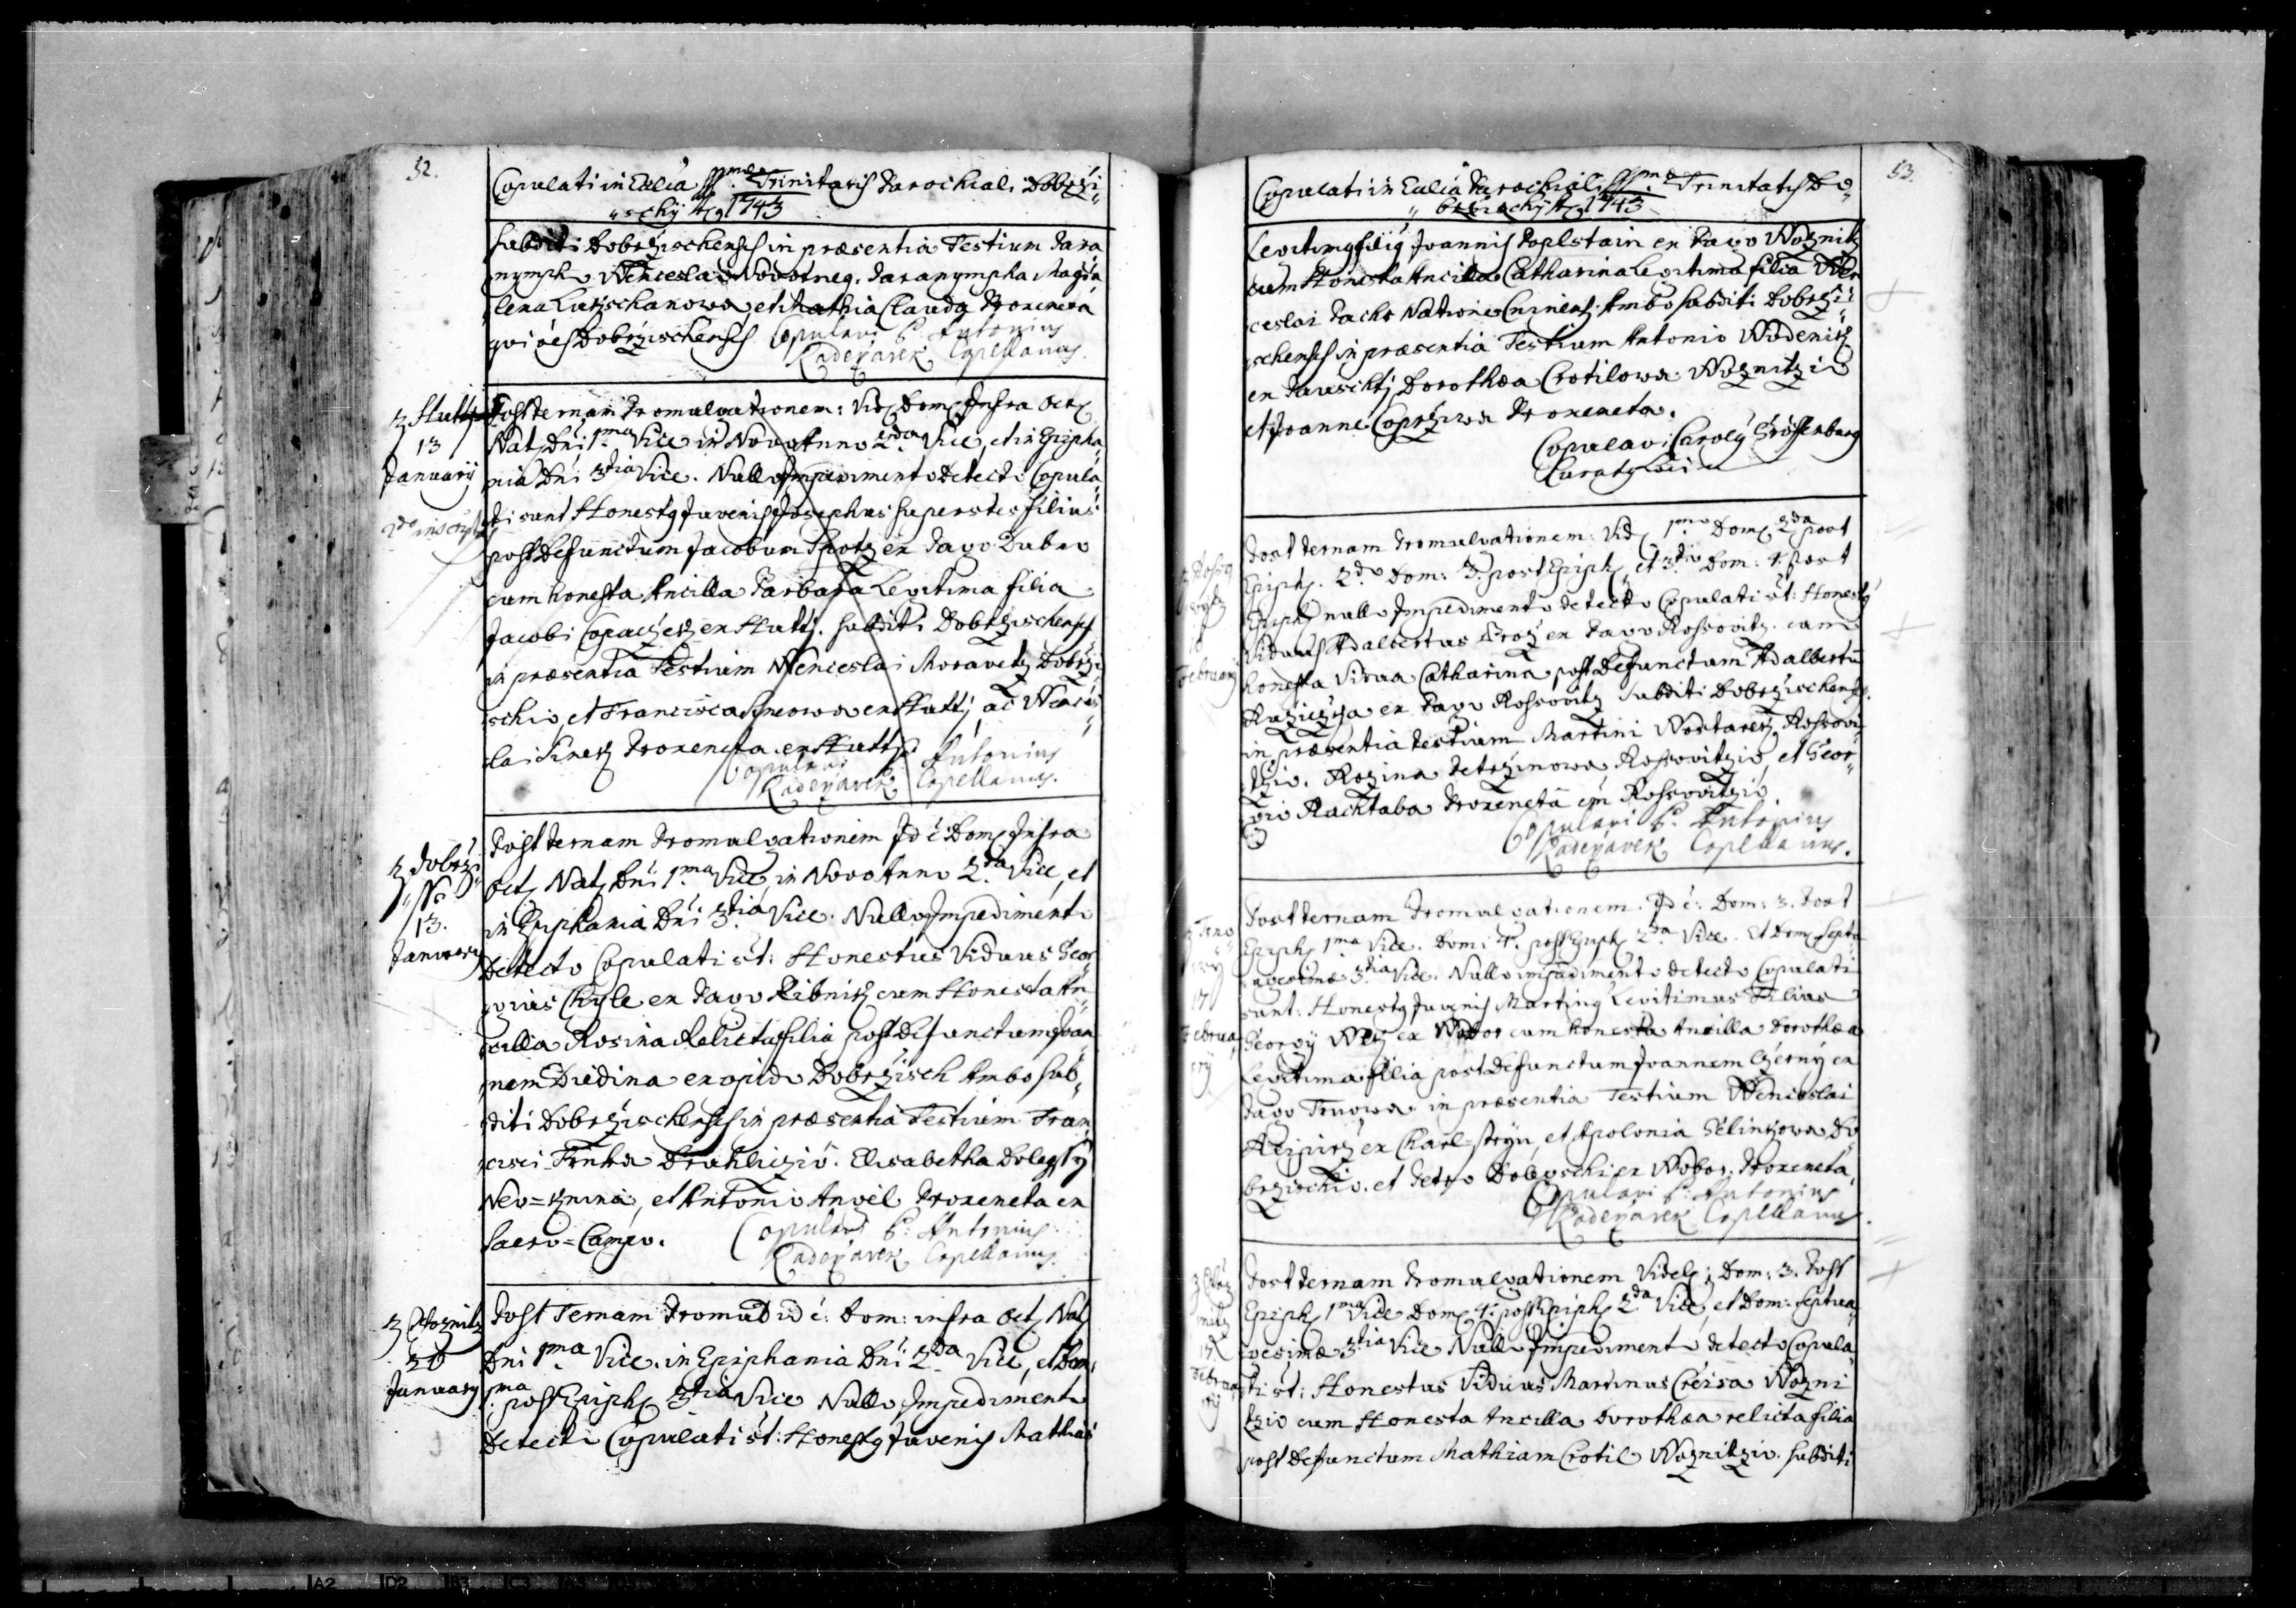 52.
Copulati in Ecclia SSmae Trinitatis Parochiali Dobrzi
schij Ao 1743
subditi Dobrzischenses in praesentia Testium Para
nympho Wenceslao Novotneg. Paranympha Magda
lena Lutzschanowa, et Mathia Clauda Proxeneta
qvi oes Dobrzischenses Copulavi P. Antonius
Raderzavek Capellanus.
z Hutti
13
January
2do inscriptus
Post ternam Promulgationem: Vid. Dom. Infra Oct.
Nat. Dni 1ma Vice in Novo Anno 2da Vice, et in Epipha
nia Dni 3tia Vice. Nullo Impedimento Detecto Copula
ti sunt Honestus Juvenis Josephus superstes filius
post Defunctum Jacobum Spotz ex Pago Dubno
cum honesta Ancilla Barbara Legitima filia
Jacobi Copaczek ex Hutti. subditi Dobrzischenses
in praesentia Testium Wenceslai Moravetz Dobrzi
schio, et Francisca Simeowa ex Hutti, ac Wences
lai Simek Proxeneta ex Hutti.
Copulavi P. Antonius
Raderzavek Capellanus.
z Dobrzi
sse
13.
January
Post ternam Promulgationem Id é: Dom. Infra
Oct. Nat. Dni 1ma Vice, in Novo Anno 2da Vice, et
in Epiphania Dni 3tia Vice. Nullo Impedimento
Detecto Copulati st: Honestus Viduus Geor
gius Chyle ex Pago Ribnik cum Honesta An
cilla Rosina Relicta filia post Defunctum Joan
nem Diedina ex opido Dobrzisch Ambo sub
diti Dobrzischenses in praesentia Testium Fran
cisci Trnka Druhliczio. Elisabetha Dolegssy
Neo=Knina, et Antonio Angel Proxeneta ex
Sacro=Campo. Copulavi P. Antonius
Raderzavek Capellanus.
z Woznitz
20
January
Post Ternam Promul. Id é: Dom: infra Oct. Nat.
Dni 1ma Vice. in Epiphania Dni 2da Vice, et Dom:
1ma post Epiph. 3tia Vice Nullo Impedimento
Detecto Copulati st: Honestus Juvenis Mathias
53.
Copulati in Ecclia Parochiali SSmae Trinitatis Do
brzischij Ao 1743
Legitimus filius Joannis Poplstain ex Pago Woznitz
cum Honesta Ancilla Catharina Legitima filia Wen
ceslai Pacho Natione Ambo subditi Dobrzi
schenses in praesentia Testium Antonio Wodenitz
ex Pauschtj Dorothea Crotilowa Woznitzio
et Joanne Coprziwa Proxeneta.
Copulavi Carolus Grössenburg
Curatus Loci
z Rosso
witz
10
February
Post ternam Promulgationem: Vid. 1mo Dom. 2da post
Epiph. 2do Dom: 3. post Epiph. et 3tio Dom: 4. post
Epiph. nullo Impedimento detecto Copulati st: Honestus
Viduus Adalbertus Broz ex Pago Rossovitz. cum
honesta Vidua Catharina post Defunctum Adalbertum
Ruziczka ex Pago Rossovitz subditi Dobrzischenses.
in praesentia testium Martini Wostarek Rossovi
tzio. Rozina Petrzinowa Rossovitzio, et Geor
gio Rachtaba Proxeneta em Rossovitzio.
Copulavi P. Antonius
Raderzavek Capellanus.
z Trno
wy
17
Februa
ry
Post ternam Promulgationem. Id é: Dom: 3. Post
Epiph. 1ma Vice. Dom: 4. post Epiph. 2da Vice. et Dom. Septu
agesimae 3tia Vice. Nullo impedimento detecto Copulati
sunt: Honestus Juvenis Martinus Legitimus Filius
Georgij Wlk ex Wobor cum honesta Ancilla Dorothea
Legitima filia post Defunctum Joannem Czerny ex
Pago Trnowa in praesentia Testium Wenceslai
ex Charl=steyn, et Apolonia Gelinkowa Do
brzischio. et Petro Dobuschi ex Wobor. Proxeneta,
Copulavi P: Antonius
Raderzavek Capellanus.
z Woz
nitz
17
Februa
ry
Post ternam Promulgationem Videl: Dom: 3. Post
Epiph. 1ma Vice Dom. 4. post Epiph. 2da Vice, et Dom: Septua
gesimae 3tia Vice Nullo Impedimento detecto Copula
ti st: Honestus Viduus Martinus Creisa Wozni
tzio cum Honesta Ancilla Dorothea relicta filia
post Defunctum Mathiam Crotil Woznitzio. subditi